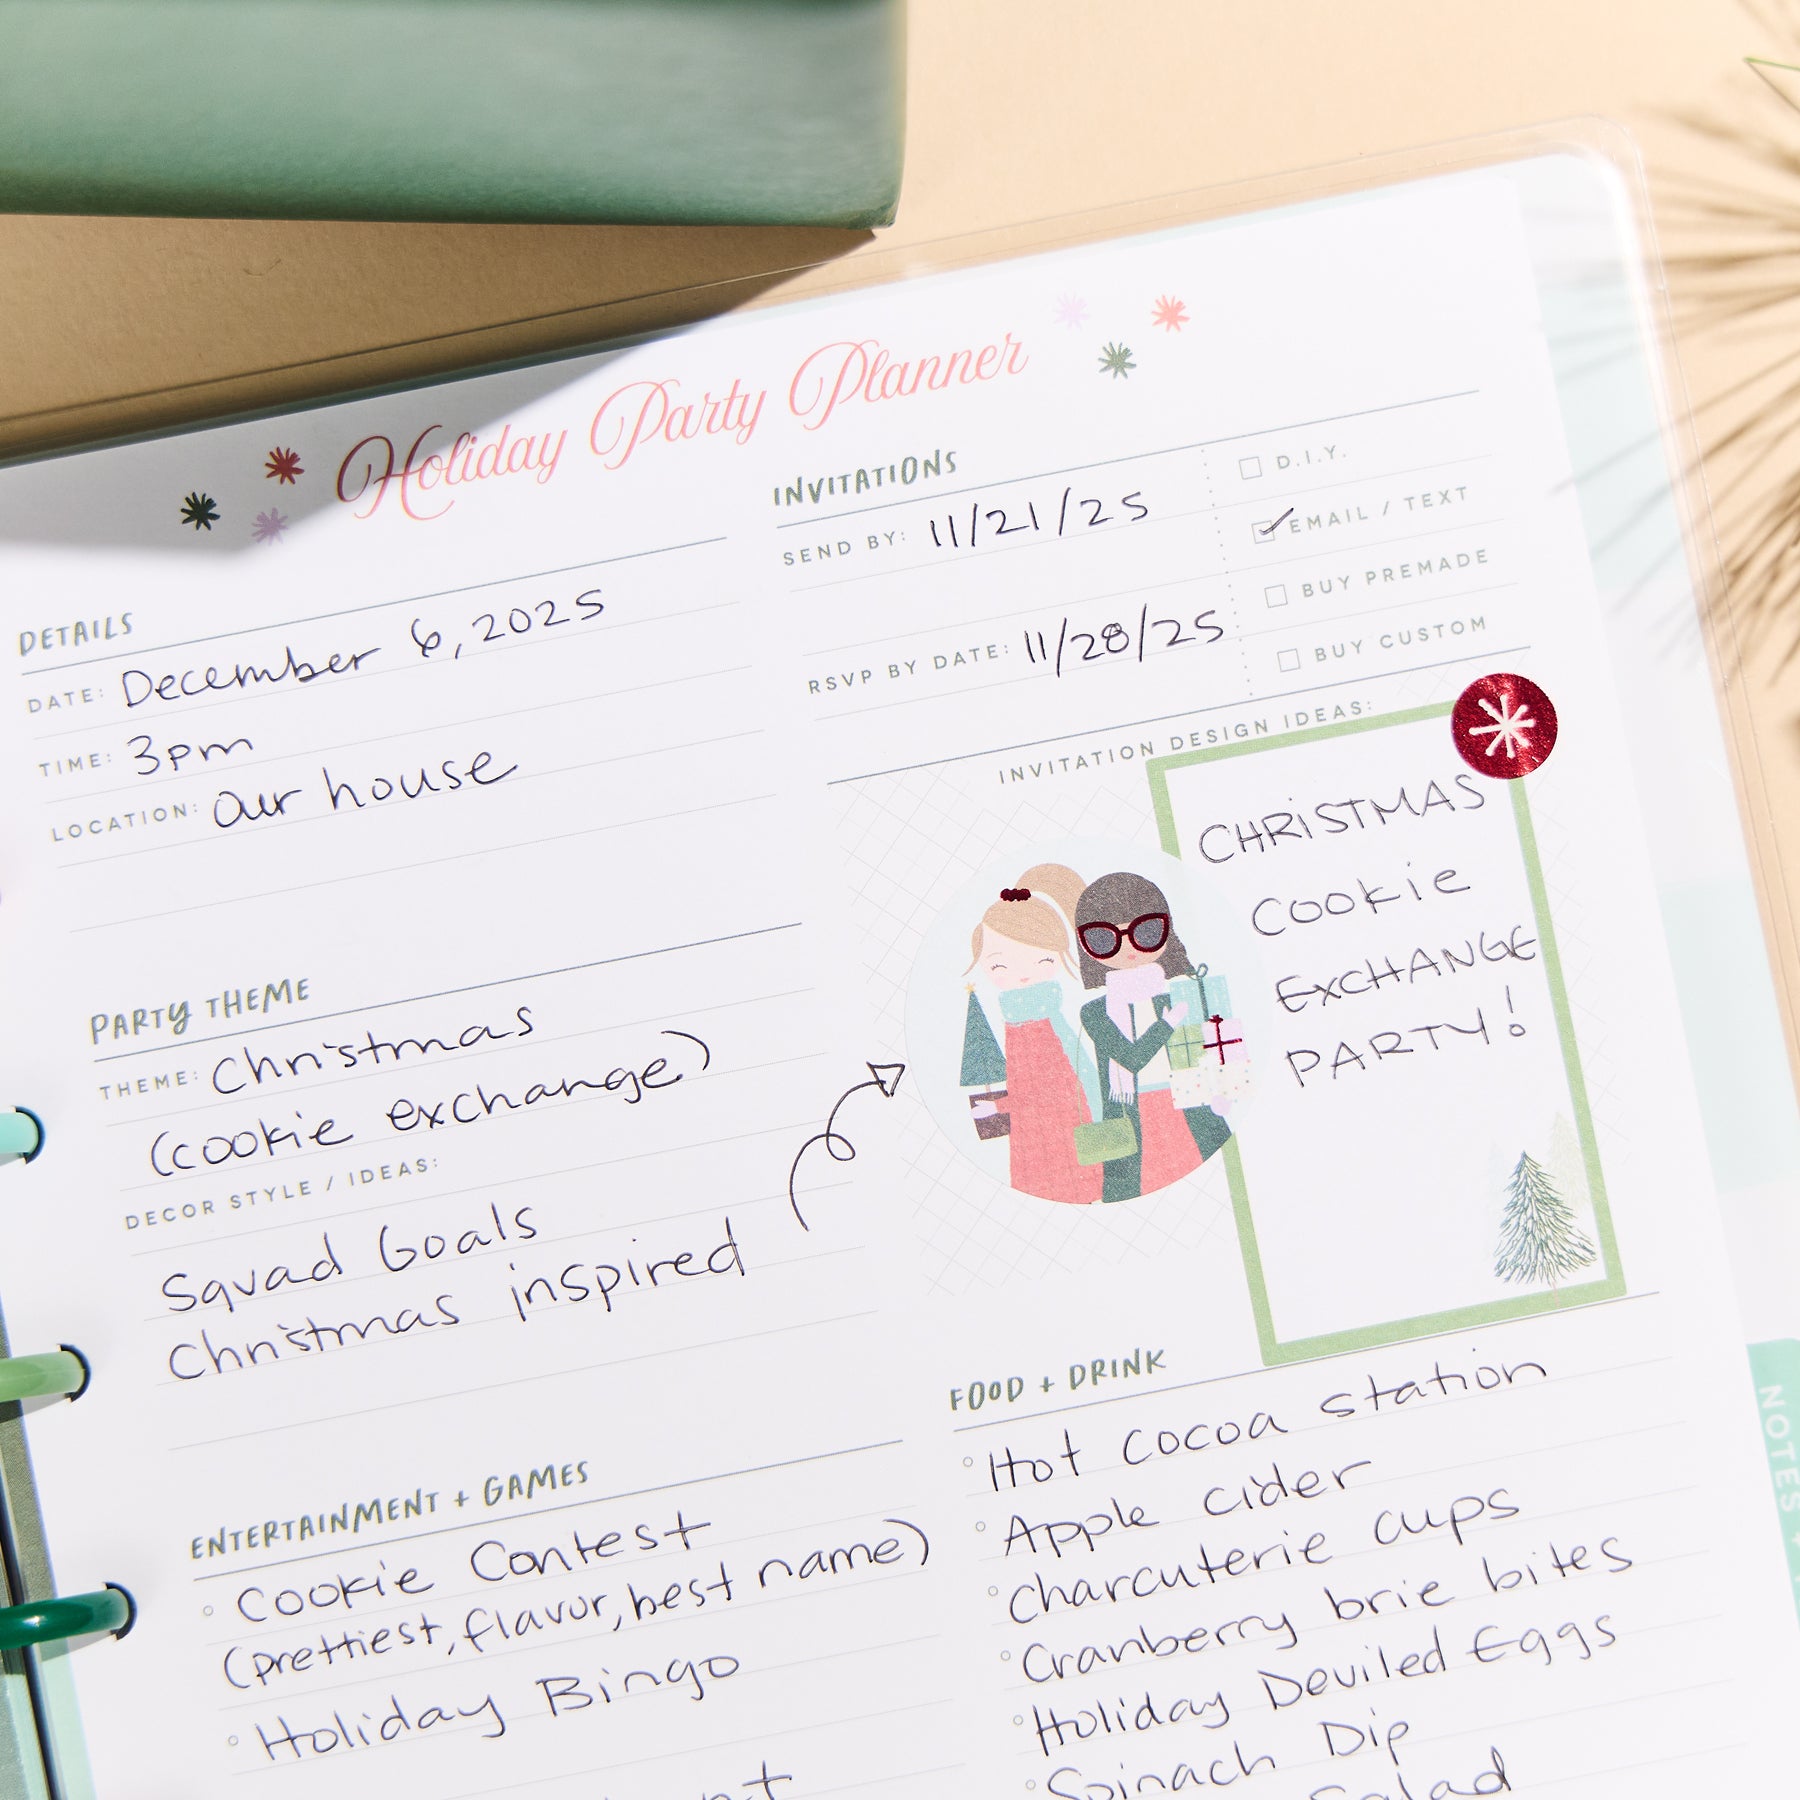 Holiday Party Planner
DETAILS
DATE: December 6, 2025
TIME: 3pm
LOCATION: our house
INVITATIONS
SEND BY: 11/21/25
RSVP BY DATE: 11/28/25
D.I.Y.
EMAIL / TEXT
BUY PREMADE
BUY CUSTOM
INVITATION DESIGN IDEAS:
CHRISTMAS
COOKIE
EXCHANGE
PARTY!
PARTY THEME
THEME: Christmas
(cookie exchange)
DECOR STYLE / IDEAS:
Squad Goals
Christmas inspired
ENTERTAINMENT + GAMES
Cookie Contest
(prettiest, flavor, best name)
Holiday Bingo
FOOD + DRINK
Hot cocoa station
Apple cider
Charcuterie cups
Cranberry brie bites
Holiday Deviled Eggs
Spinach Dip
Salad
NOTES